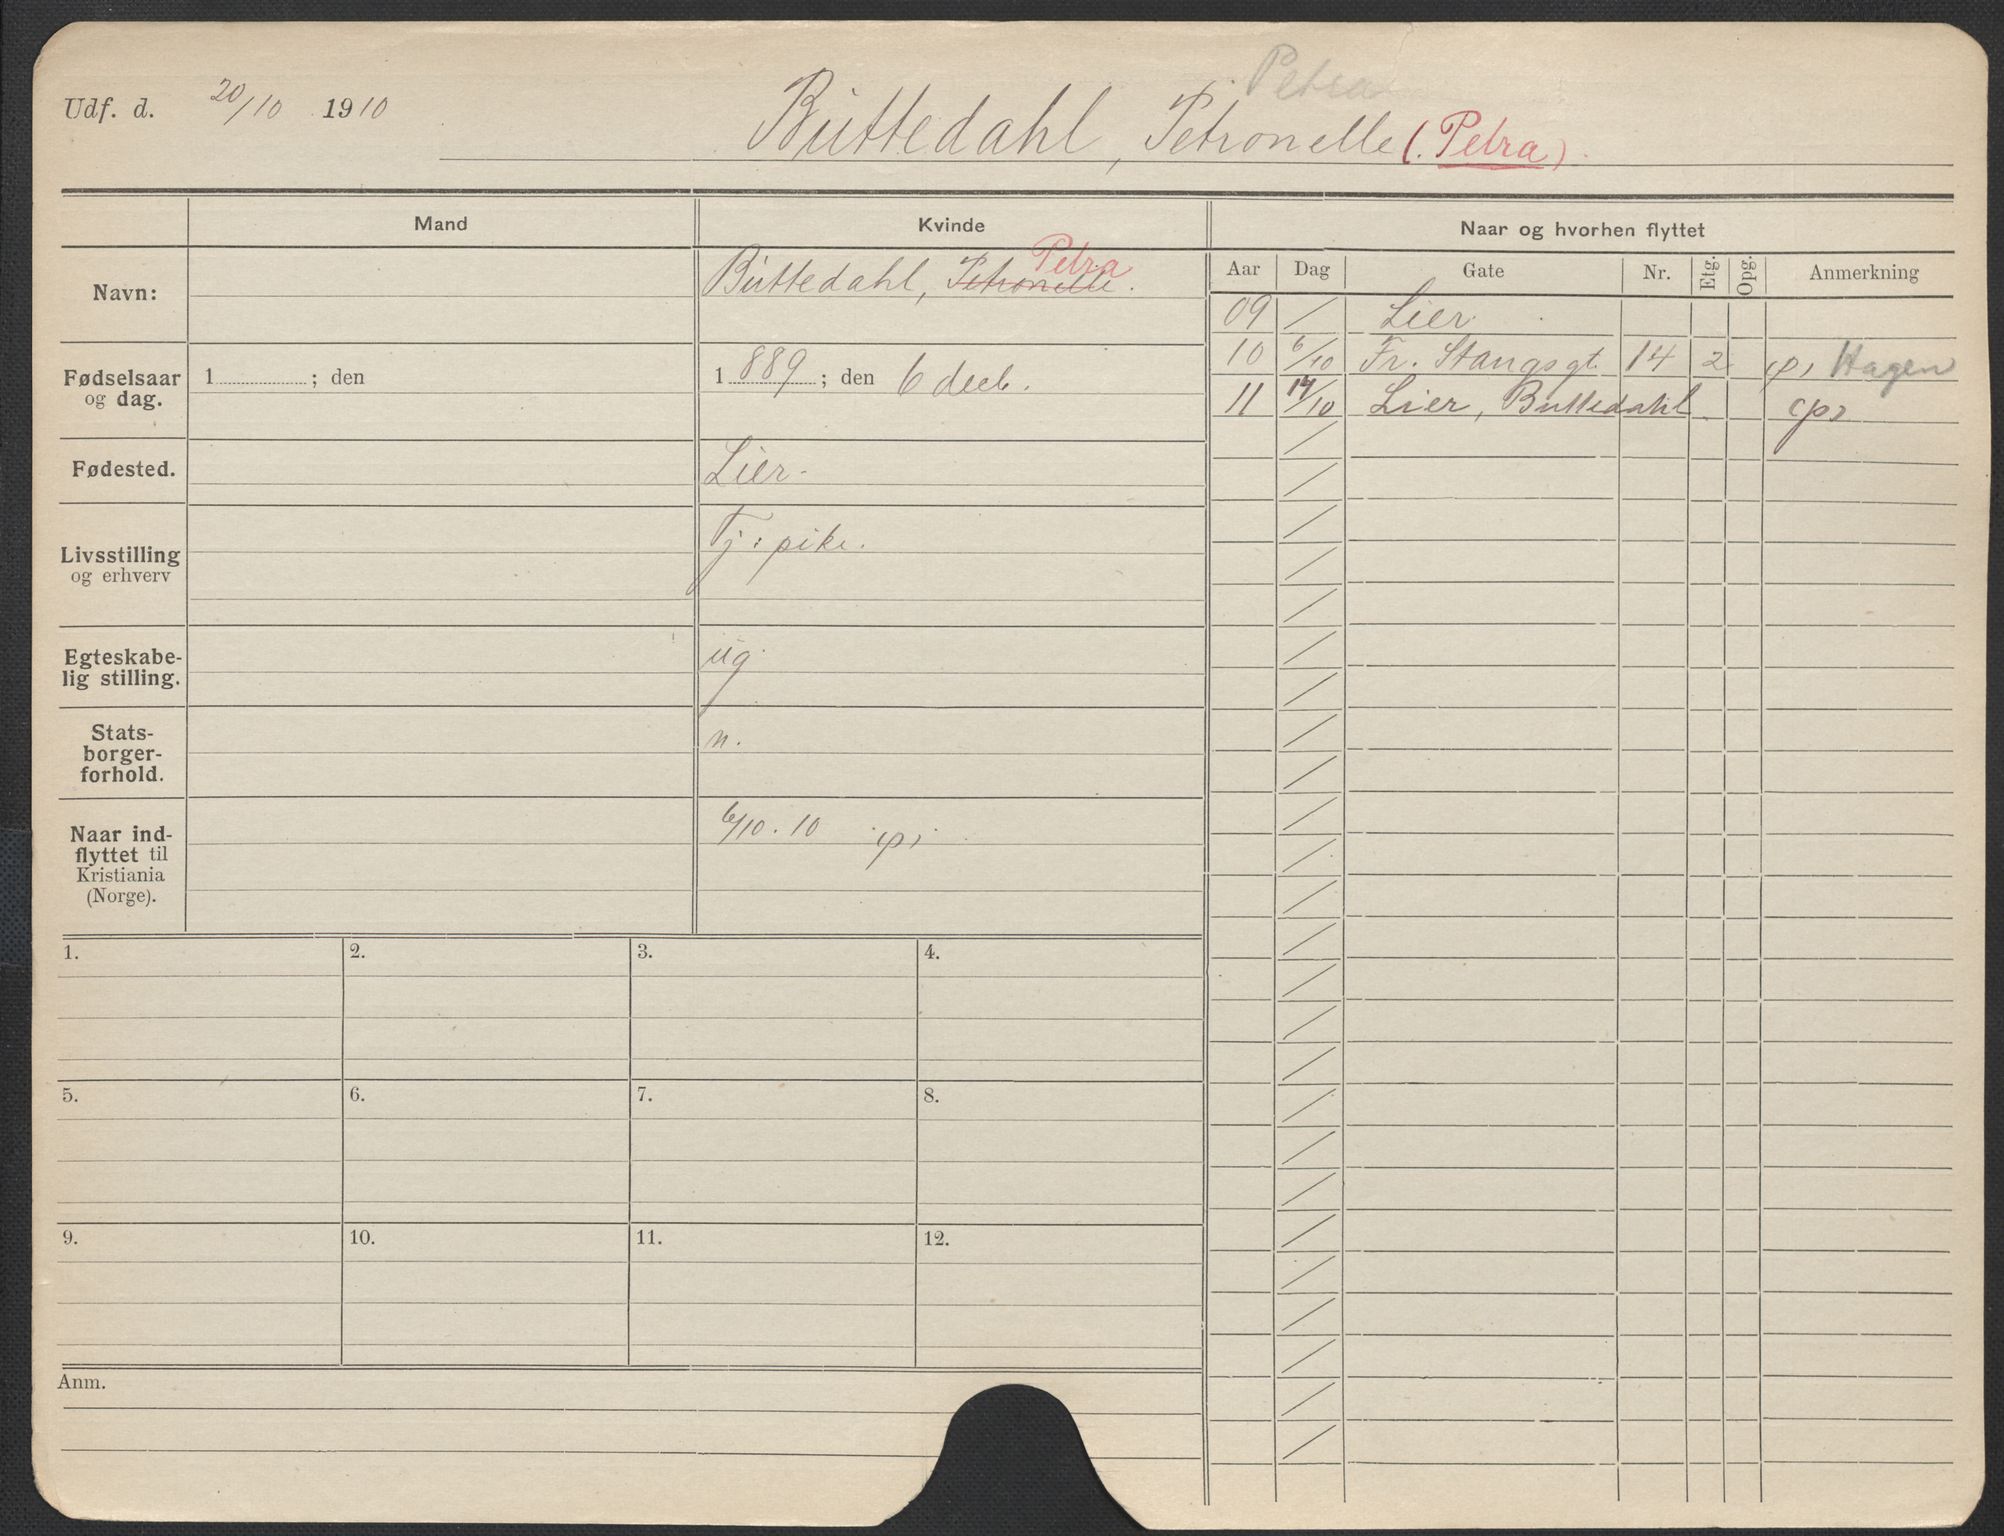 Petra
Udf. d. 20/10 1910 Buttedahl, Petronelle (Petra)
Mand Kvinde Naar og hvorhen flyttet
Aar Dag Gate Nr. Etg. Opg. Anmerkning
Petra
Navn: Buttedahl, Petronelle.
09 / Lier
10 6/10 Fr. Stangsgt. 14 2 Hagen
11 14/10 Lier, Buttedahl
Fødselsaar
og dag.
1 ; den
1889 ; den 6 decb.
Fødested. Lier
Livsstilling
og erhverv
Tj: pike.
Egteskabe-
lig stilling.
ug
Stats-
borger-
forhold.
n.
Naar ind-
flyttet til
Kristiania
(Norge).
6/10. 10
1. 2. 3. 4.
5. 6. 7. 8.
9. 10. 11. 12.
Anm.